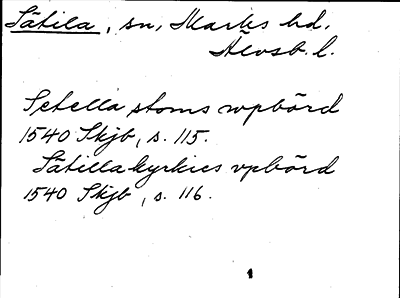 Sätila, sn, Marks hd.
Älvsb. l.
Setella stoms wpbörd
1540 Skjb, s. 115.
Sätilla kyrkies vpbörd
1540 Skjb, s. 116.
1